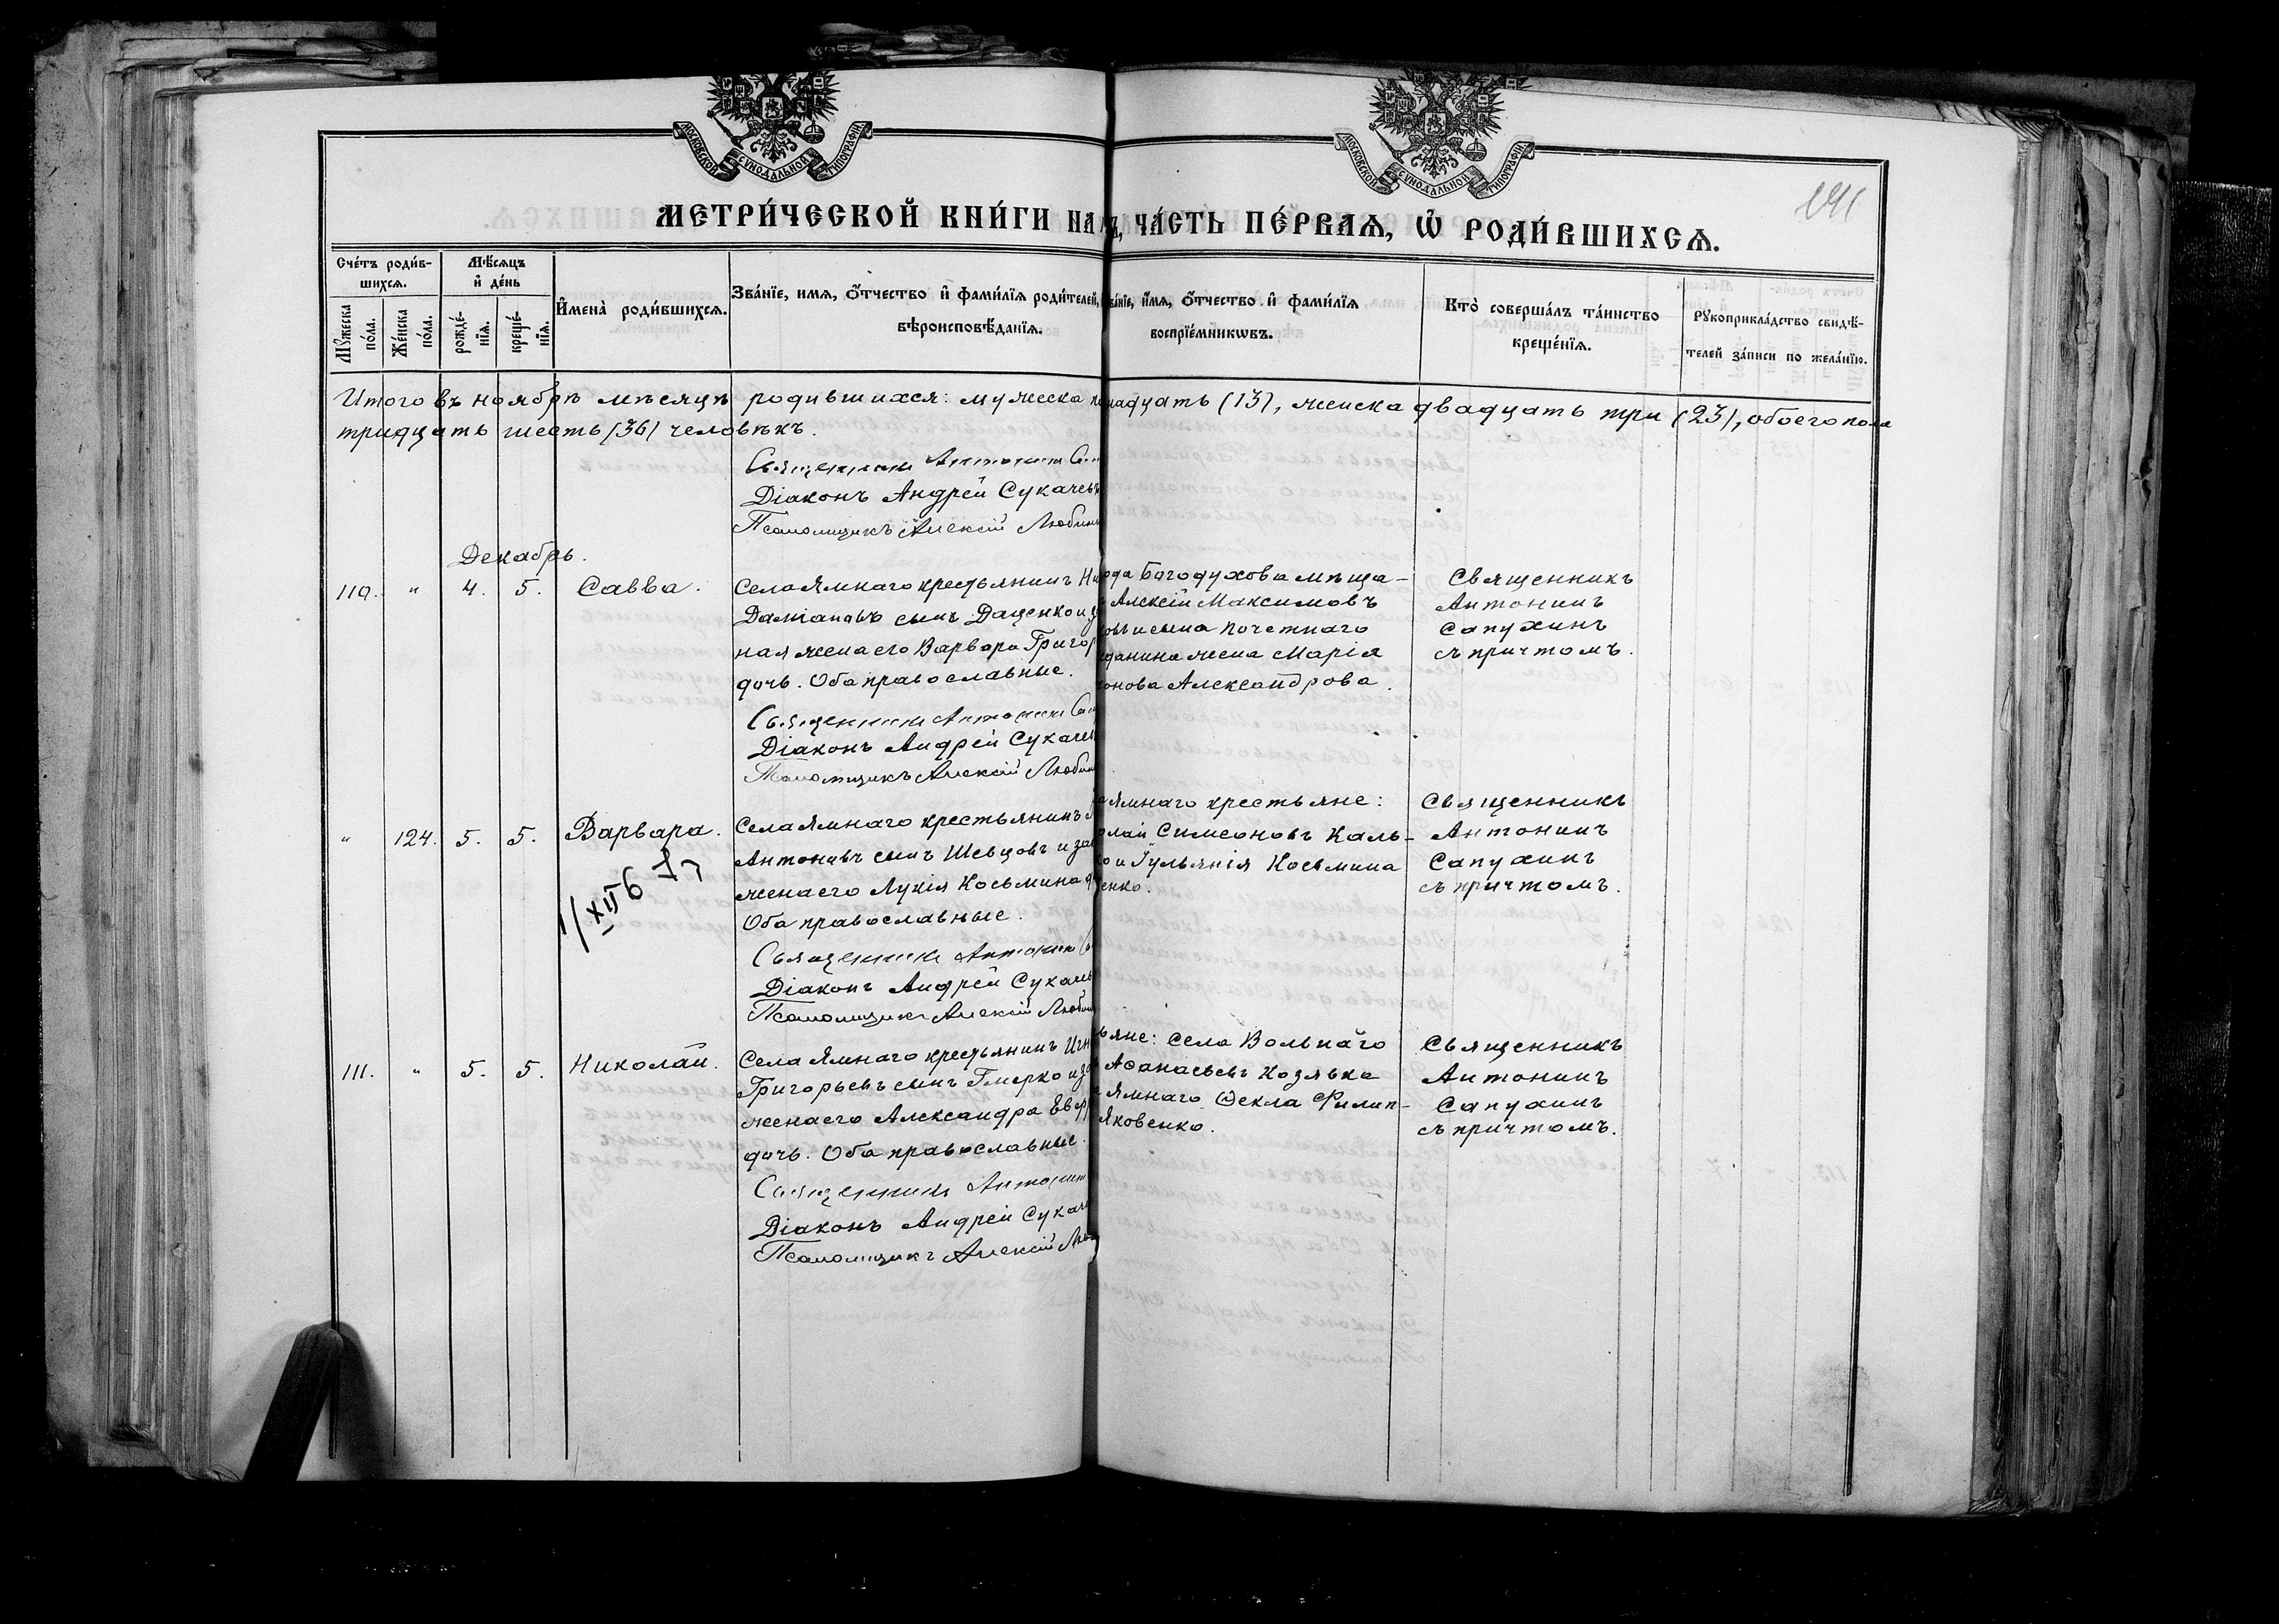 МОСКОВСКОЙ СУНОДАЛЬНОЙ ТИПОГРАФІИ
МОСКОВСКОЙ СУНОДАЛЬНОЙ ТИПОГРАФІИ
МЕТРИ́ЧЕСКОЙ КНИ́ГИ НА
ЧА́СТЬ ПЕ́РВАѦ, Ѡ РОДИ́ВШИХСѦ.
Сче́тъ роди́в-
шихсѧ.
Мꙋ́жеска по́ла.
Же́нска по́ла.
Мѣ́сѧцъ
и де́нь
рожде́-
нїѧ.
креще́-
нїѧ.
Имена̀ роди́вшихсѧ.
Зва́нїе, имѧ, о́тчество и фами́лїѧ роди́телей,
вѣроисповѣ́данїѧ.
ва́нїе, и́мѧ, о́тчество и фами́лїѧ
воспрїе́мникѡвъ.
Кто̀ соверша́лъ та́инство
креще́нїѧ.
Рꙋкоприкла́дство свидѣ́-
телей за́писи по жела́нїю.
Итого въ ноябрѣ мѣсяцѣ родившихся: мужеска
надцать (13), женска двадцать три (23), обоего пола
тридцать шесть (36) человѣкъ.
Священникъ Антонинъ
Діаконъ Андрей Сукачевъ
Псаломщикъ Алексій
Декабрь.
110. " 4. 5. Савва.
Села Ямнаго крестьянинъ
Даміановъ сынъ Даценко и
ная жена его Варвара
дочь. Оба православные.
Священникъ Антонинъ
Діаконъ Андрей
Псаломщикъ Алексій
ода Богодухова мѣща-
Алексій Максимовъ
овъ и сына почетнаго
жданина жена Марія
онова Александрова.
Священникъ
Антонинъ
Сапухинъ
съ причтомъ.
" 124. 5. 5. Варвара.
Села Ямнаго крестьянинъ
Антоновъ сынъ Шевцовъ и
жена его Лукія Косьмина
Оба православные.
Священникъ Антонинъ
Діаконъ Андрей
Псаломщикъ Алексій
Ямнаго крестьяне:
олай Симеоновъ Каль-
о и Іульянія Косьмина
енко.
Священникъ
Антонинъ
Сапухинъ
съ причтомъ.
111. " 5. 5. Николай.
Села Ямнаго крестьянинъ
Григорьевъ сынъ Гмерко и
жена его Александра
дочь. Оба православные.
Священникъ
Діаконъ Андрей
Псаломщикъ Алексій
ьяне: села Вольнаго
Аѳанасьевъ Козявка
Ямнаго Ѳекла Филип-
Яковенко.
Священникъ
Антонинъ
Сапухинъ
съ причтомъ.